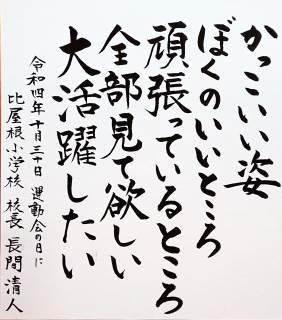 かっこいい姿
ぼくのいいところ
頑張っているところ
全部見て欲しい
大活躍したい
令和四年十月三十日 運動会の日に
比屋根小学校 校長 長間清人